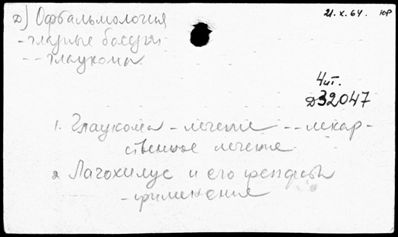 21.X.64. ЮР
Д) Офтальмология
- глазные болезни
-- глаукома
4 шт.
Д32047
1. Глаукома - лечение -- лекар-
ственное лечение
2. Лагохилус и его препараты
- применение